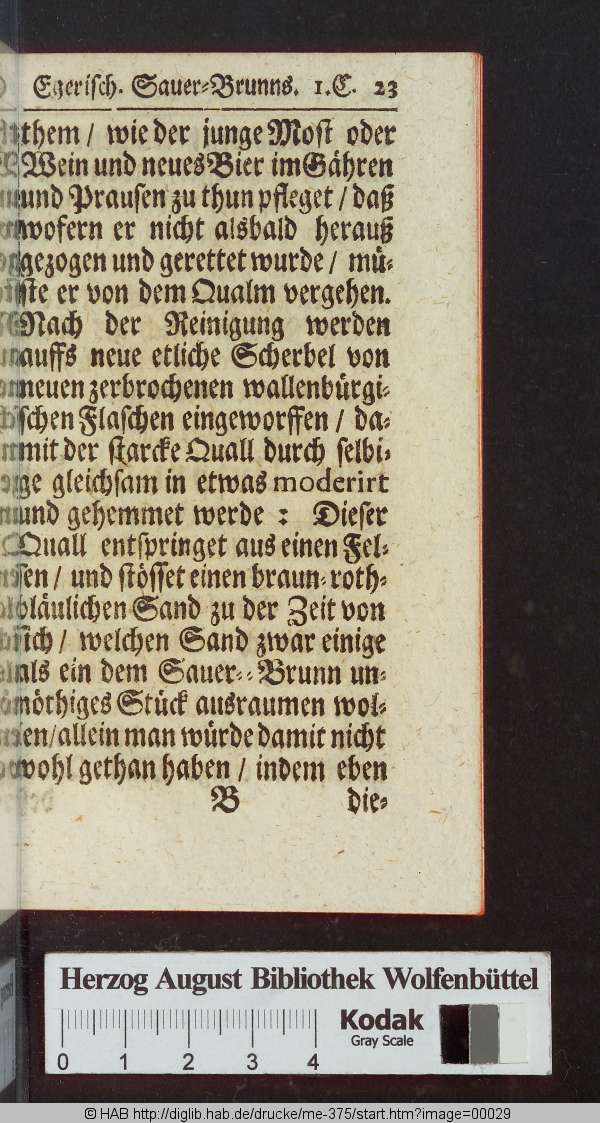 Egerisch. Sauer-Brunns. 1.C. 23
them / wie der junge Most oder
Wein und neues Bier im Gähren
und Prausen zu thun pfleget / daß
wofern er nicht alsbald herauß
gezogen und gerettet wurde / mü-
ste er von dem Qualm vergehen.
Nach der Reinigung werden
auffs neue etliche Scherbel von
neuen zerbrochenen wallenbürgi-
schen Flaschen eingeworffen / da-
mit der starcke Quall durch selbi-
ge gleichsam in etwas moderirt
und gehemmet werde : Dieser
Quall entspringet aus einen Fel-
sen / und stösset einen braun-roth-
bläulichen Sand zu der Zeit von
sich / welchen Sand zwar einige
als ein dem Sauer-Brunn un-
nöthiges Stück ausraumen wol-
en/allein man würde damit nicht
wohl gethan haben / indem eben
B die-
Herzog August Bibliothek Wolfenbüttel
Kodak
Gray Scale
0 1 2 3 4
© HAB http://diglib.hab.de/drucke/me-375/start.htm?image=00029